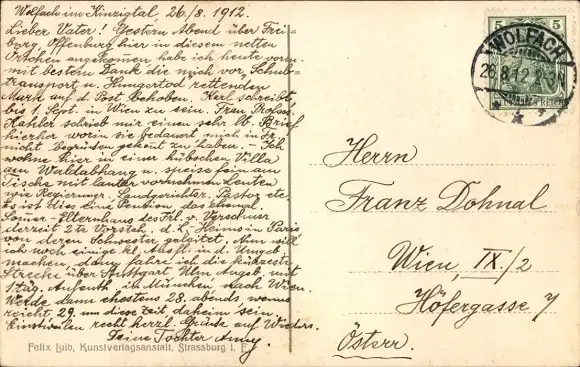 Wolfach im Kinzigtal, 26./8. 1912.
Lieber Vater! Gestern Abend über Frei-
burg, Offenburg hier in diesem netten
Örtchen angekommen habe ich heute vorm.
mit bestem Dank die mich vor Schub-
transport u. Hungertod rettenden
Mark auf d. Post behoben. Karl schreibt,
bis 1. Sept. in Wien zu sein. Frau Profess.
schrieb mir einen sehr lb. Brief
hierher worin sie bedauert mich in Fr.
nicht begrüssen gekönt zu haben. – Ich
wohne hier in einer hübschen Villa
am Waldabhang u. speise fein am
Tische mit lauter vornehmen Leuten
wie Regierungsr. Landgerichtsr. Pastor etc.
Es ist dies eine Pension der ehemal.
Somer-Elternhaus des Frl. v. Verschuer
derzeit 2te Vorsteh. d. L. Heims in Paris
von deren Schwester geleitet. Nun will
ich noch einige kl. Ausfl. in d. Umgeb.
machen, dann fahre ich die kürzeste
Strecke über Stuttgart Ulm Augsb. mit
1 täg. Aufenth. in München nach Wien.
Werde dann ehestens 28. abends, wenns
reicht, 29. um diese Zeit daheim sein.
Einstweilen recht herzl. Grüsse auf Wieders.
Deine Tochter Anny.
Felix Luib, Kunstverlagsanstalt, Strassburg i. E.
5 5
WOLFACH
26.8.12.
Herrn
Franz Dohnal
Wien, IX./2
Höfergasse 7
Österr.